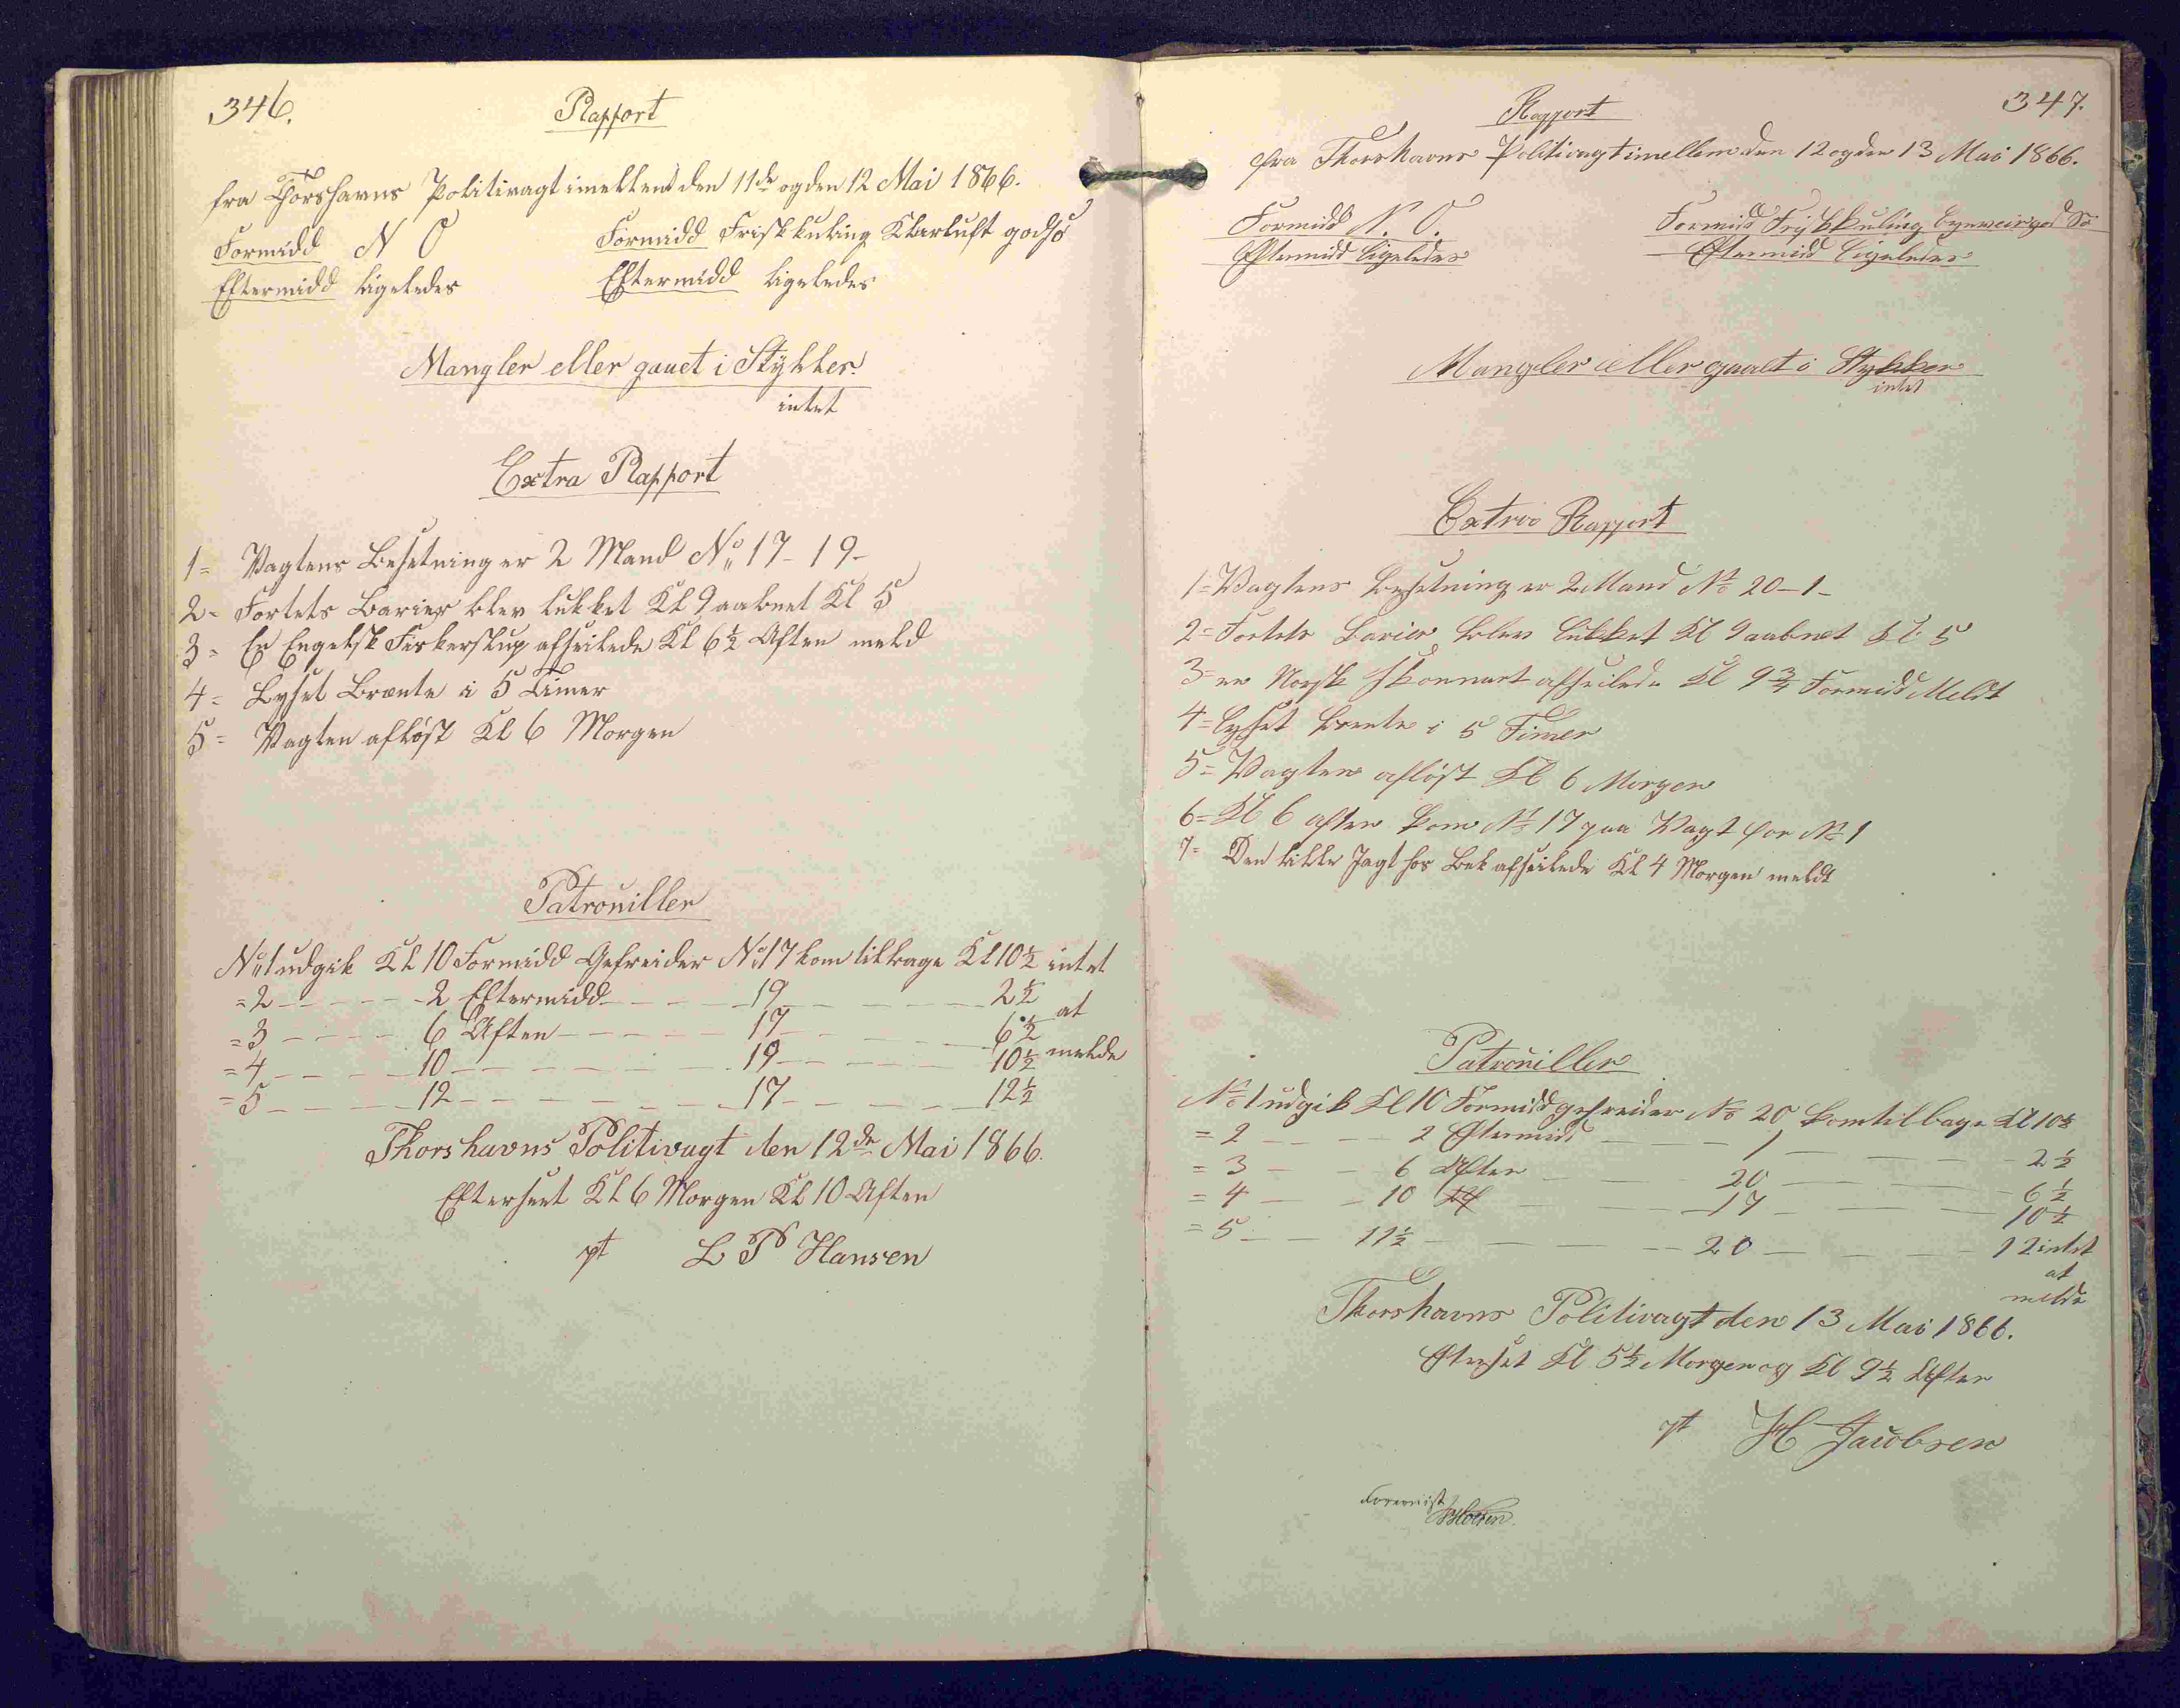 346.
Rapport
fra Thorshavns Politivagt imellem den 11de og den 12 Mai 1866.
Formidd N O Formidd Frisk kuling Klarluft god Sø
Eftermidd ligeledes Eftermidd ligeledes
Mangler eller gauet i Stykker
intet
Extra Rapport
1= Vagtens Besetning er 2 Mand No 17-19-
2= Fortets Barier blev lukket Kl 9 aabnet Kl 5
3= En Engelsk Fiskerslup afseilede Kl 6½ Aften meld
4= Lyset Brænte i 5 Timer
5= Vagten afløst Kl 6 Morgen
Patrouiller
No 1 udgik Kl 10 Formidd Gefreider No 17 kom tilbage Kl 10½ intet
=2 - - - - 2 Eftermidd - - - 19 - - - 2½ at
=3 - - - - 6 Aften - - - - 17 - - - 6½
=4 - - - - 10 - - - - - - 19 - - - 10½ melde
=5 - - - - 12 - - - - - - 17 - - - 12½
Thorshavns Politivagt den 12de Mai 1866.
Efterseet Kl 6 Morgen Kl 10 Aften
pt L P Hansen
347.
Rapport
fra Thorshavns Politivagt imellem den 12 og den 13 Mai 1866.
Formidd N. O. Formidd Frisk Kuling god Sø
Eftermidd ligeledes Eftermidd ligeledes
Mangler eller gaaet i Stykker
intet
Extra Rapport
1= Vagtens Besetning er 2 Mand No 20-1-
2= Fortets Barier blev lukket Kl 9 aabnet Kl 5
3= en Norsk Skonnert afseilede Kl 9¾ Formidd Meldt
4= lyset brente i 5 Timer
5= Vagten afløst Kl 6 Morgen
6= Kl 6 aften kom No 17 paa Vagt for No 1
7= Den lille Jagt hos Bek afseilede Kl 4 Morgen meldt
Patrouiller
No 1 udgik Kl 10 Formidd gefreider No 20 kom tilbage Kl 10½
=2 - - - 2 Eftermidd - - - 1 - - - 2½
=3 - - 6 Aften - - - 20 - - - 6½
=4 - - 10 - - - 17 - - - 10½
=5 - - 11½ - - - 20 - - - 12 intet
at
melde
Thorshavns Politivagt den 13 Mai 1866.
Efterset Kl 5½ Morgen og Kl 9½ Aften
pt H Jacobsen